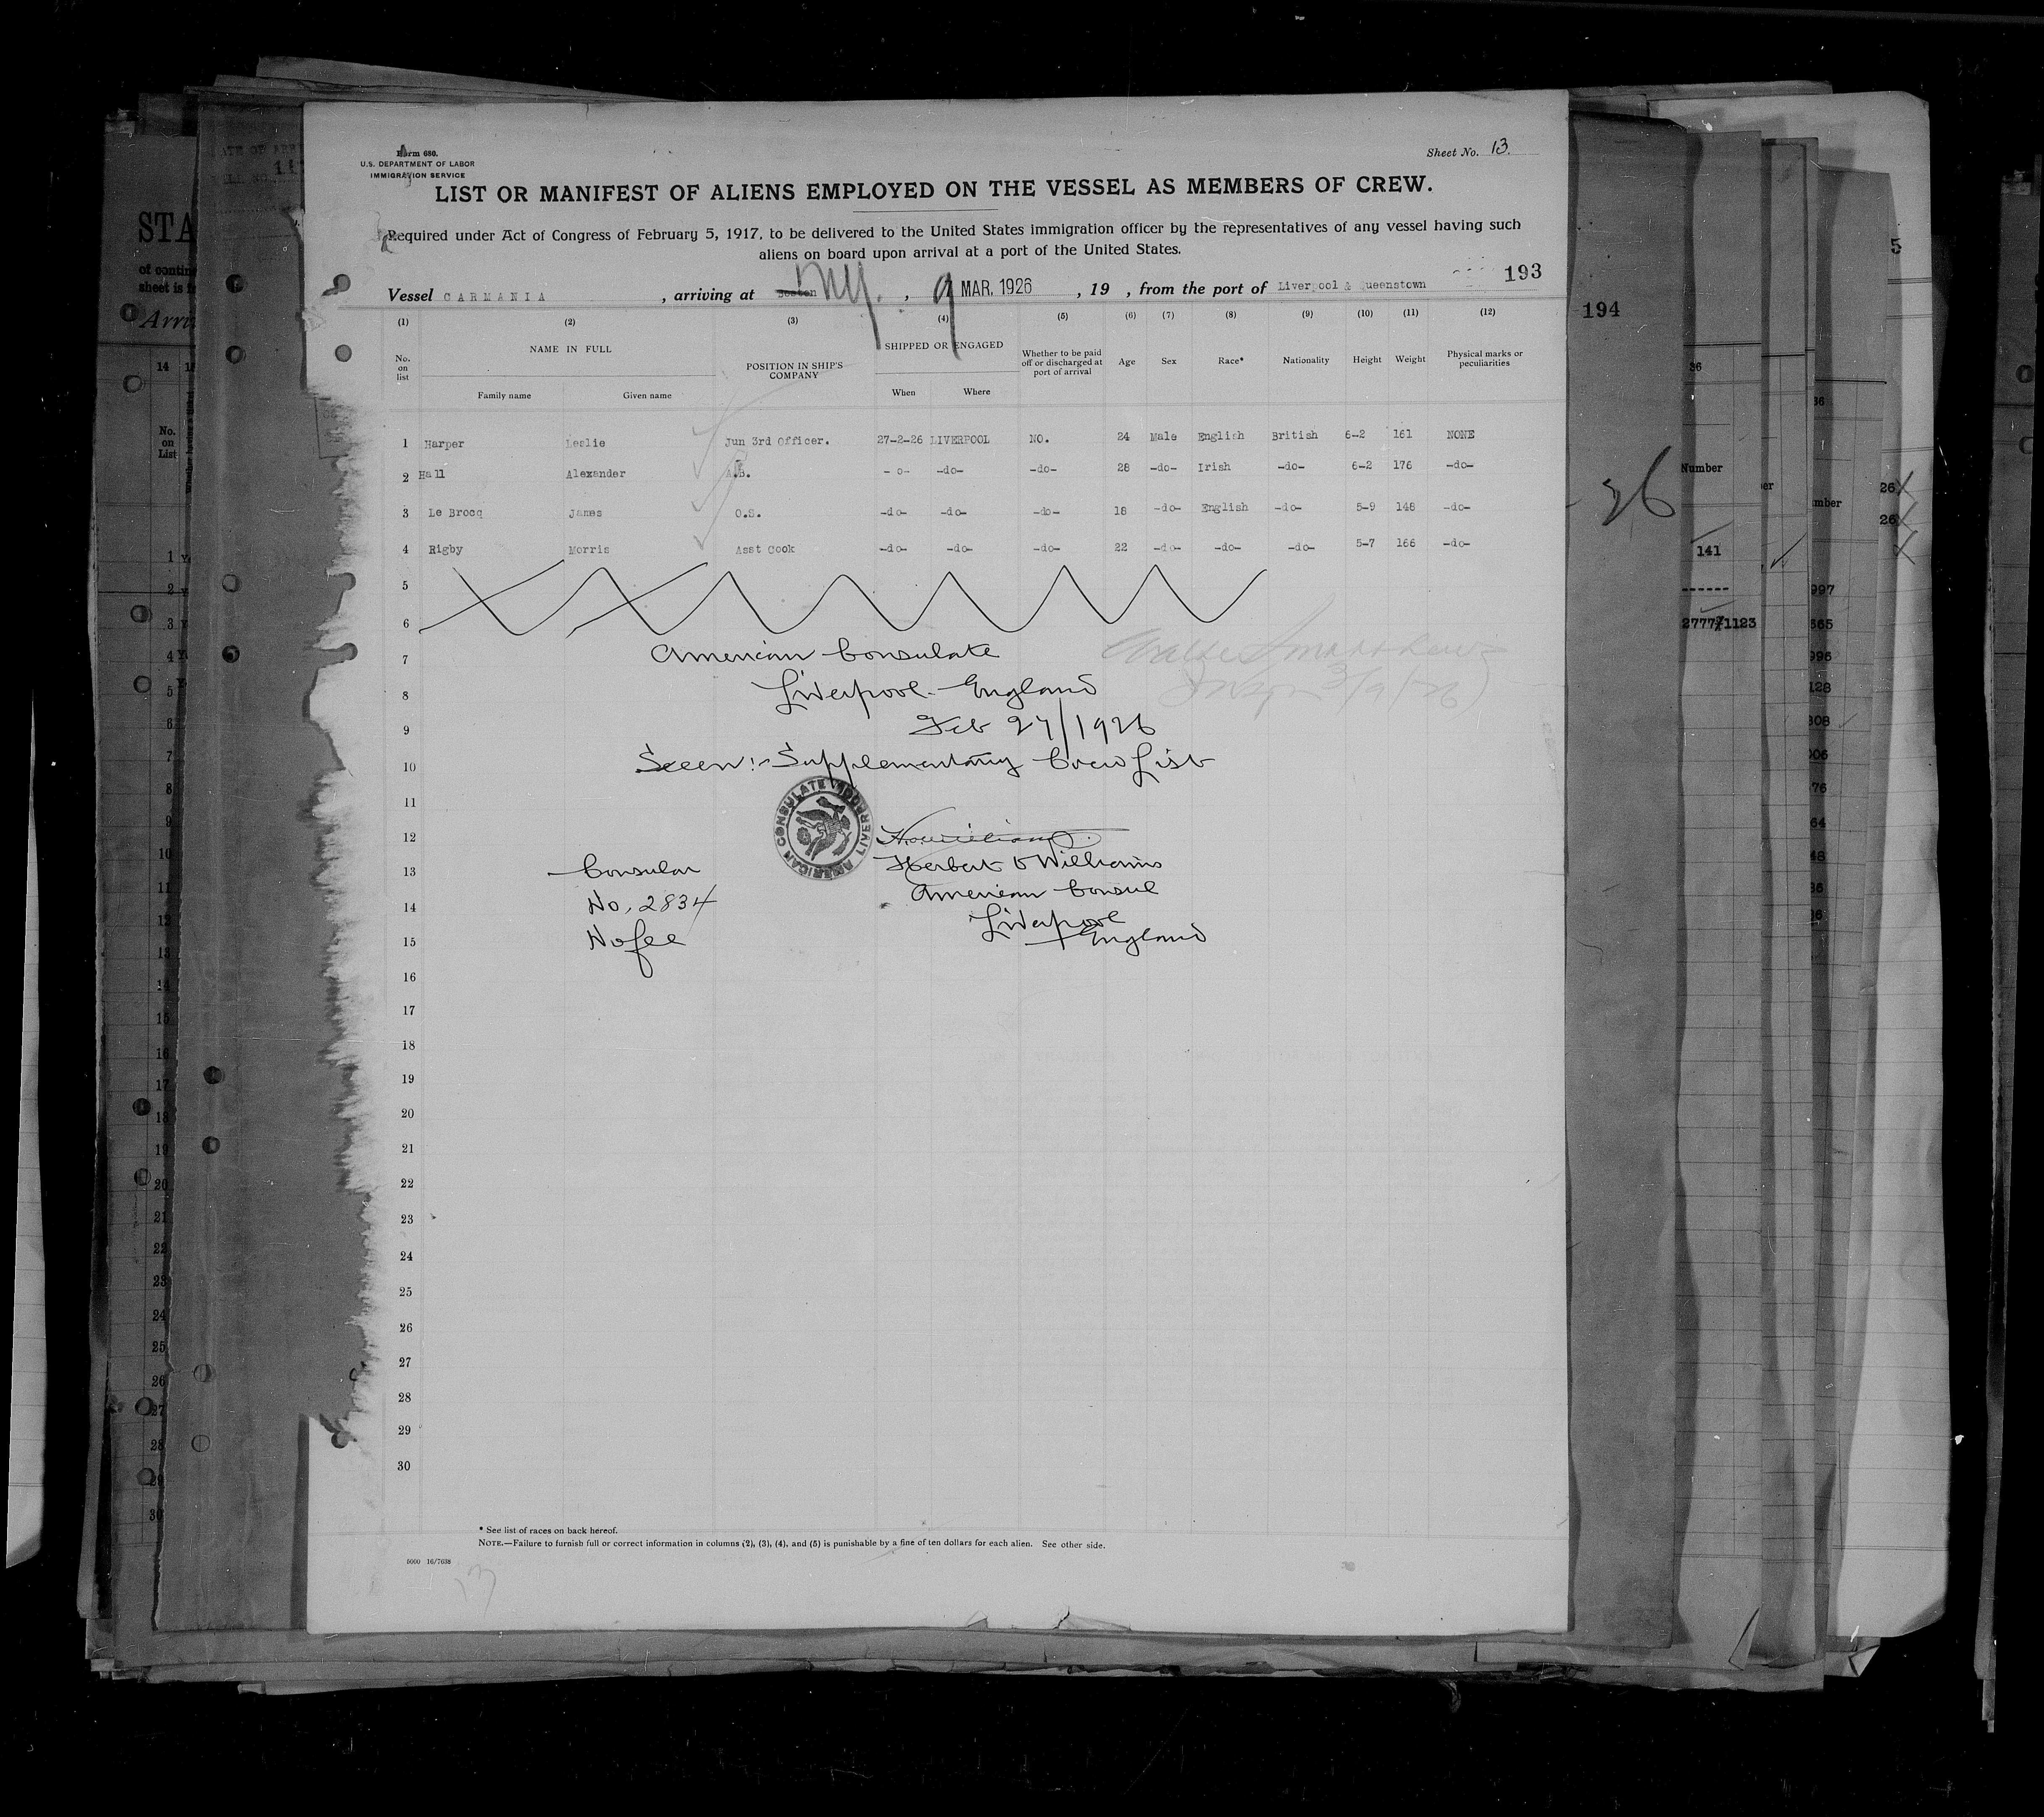 Form 680.
U.S. DEPARTMENT OF LABOR
IMMIGRATION SERVICE
Sheet No. 13.
LIST OR MANIFEST OF ALIENS EMPLOYED ON THE VESSEL AS MEMBERS OF CREW.
Required under Act of Congress of February 5, 1917, to be delivered to the United States immigration officer by the representatives of any vessel having such
aliens on board upon arrival at a port of the United States.
193
Vessel CARMANIA , arriving at Boston N.Y. , 9 MAR. 1926 , 19 , from the port of Liverpool & Queenstown
(1) (2) (3) (4) (5) (6) (7) (8) (9) (10) (11) (12)
No. on list NAME IN FULL POSITION IN SHIP'S COMPANY SHIPPED OR ENGAGED Whether to be paid off or discharged at port of arrival Age Sex Race* Nationality Height Weight Physical marks or peculiarities
Family name Given name When Where
1 Harper Leslie Jun 3rd Officer. 27-2-26 LIVERPOOL NO. 24 Male English British 6-2 161 NONE
2 Hall Alexander A.B. - o- -do- -do- 28 -do- Irish -do- 6-2 176 -do-
3 Le Brocq James O.S. -do- -do- -do- 18 -do- English -do- 5-9 148 -do-
4 Rigby Morris Asst Cook -do- -do- -do- 22 -do- -do- -do- 5-7 166 -do-
5
6
7 American Consulate
8 Liverpool. England
9 Feb 27/1926
10 Seen:- Supplementary Crew List
11
AMERICAN CONSULATE LIVERPOOL
12
13 Consular Herbert O Williams
14 No. 2834 American Consul
15 No fee Liverpool
England
3/9/26
16
17
18
19
20
21
22
23
24
25
26
27
28
29
30
* See list of races on back hereof.
NOTE.—Failure to furnish full or correct information in columns (2), (3), (4), and (5) is punishable by a fine of ten dollars for each alien. See other side.
5000 16/7638
13
194
26
36
Number
141
27777 1123
STA
of contin
sheet is f
Arri
14
No. on List
1
2
3
4
5
6
7
8
9
10
11
12
13
14
15
16
17
18
19
20
21
22
23
24
25
26
27
28
29
30